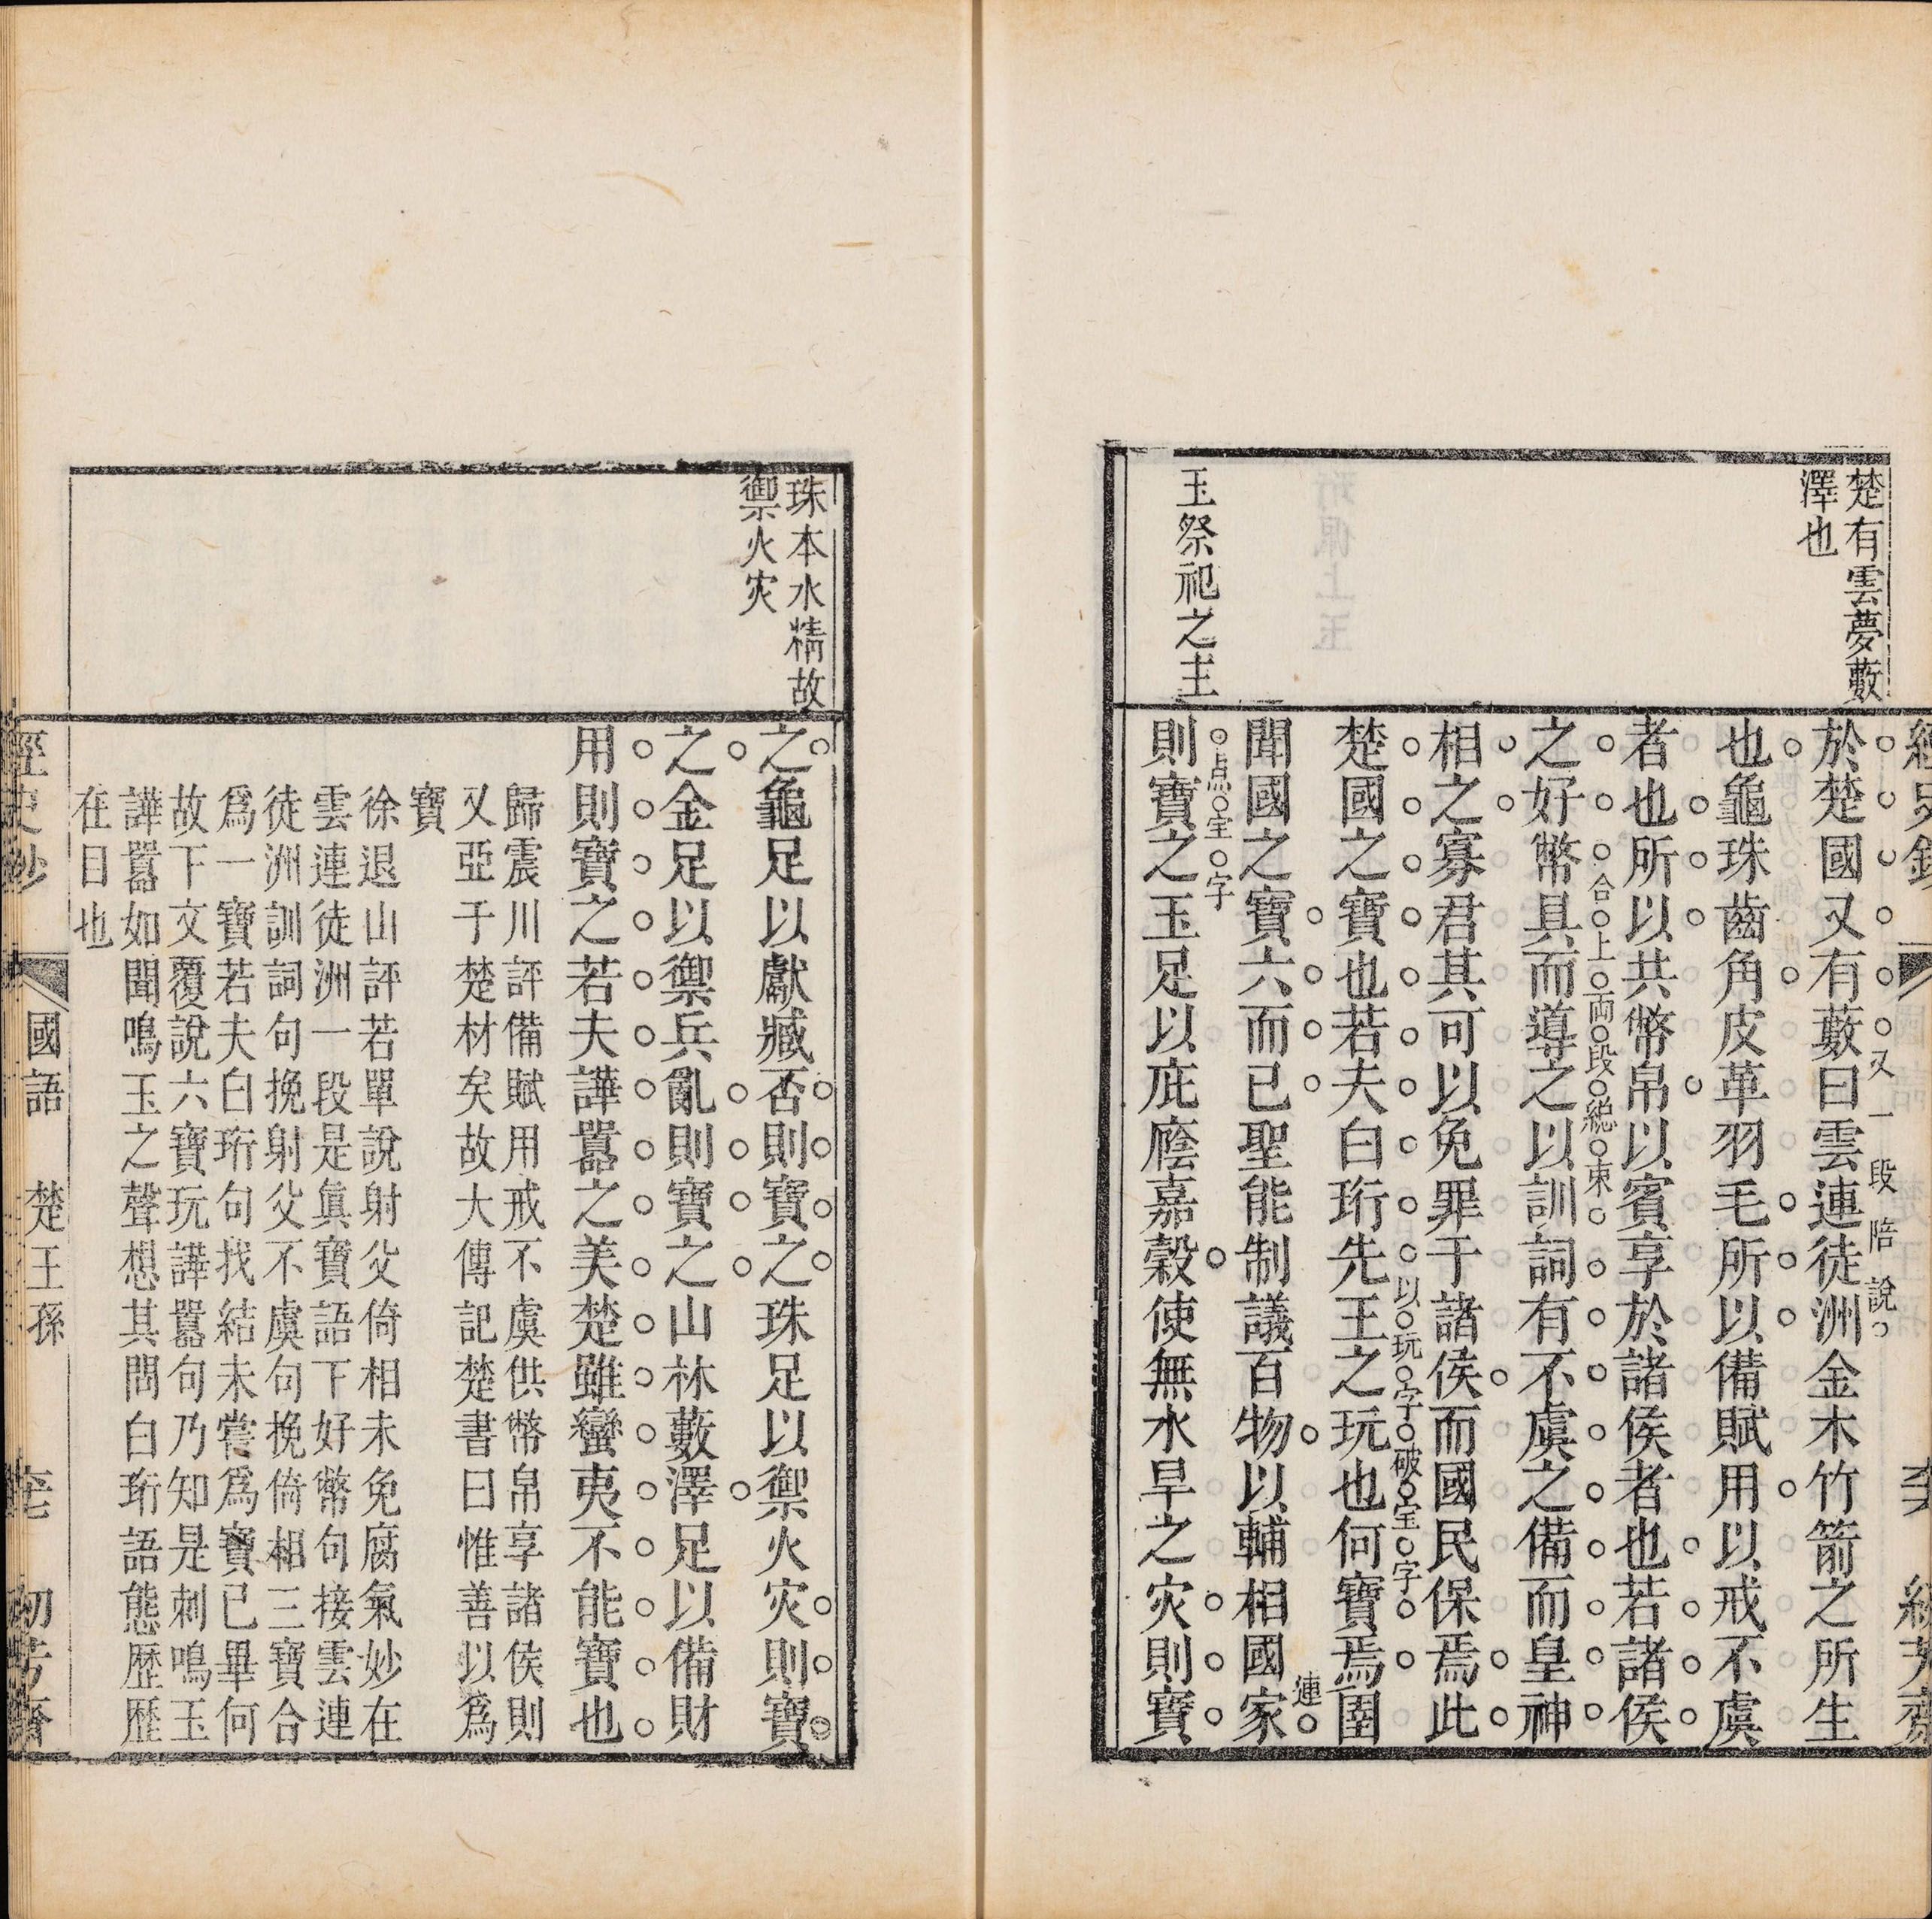 楚有雲夢藪
澤也
於楚國又有藪曰雲連徒洲金木竹箭之所生
又一段陪說
也龜珠齒角皮革羽毛所以備賦用以戒不虞
者也所以共幣帛以賓享於諸侯者也若諸侯
之好幣具而導之以訓詞有不虞之備而皇神
合上両段総束
相之寡君其可以免罪于諸侯而國民保焉此
楚國之寶也若夫白珩先王之玩也何寶焉圉
以玩字破宝字
聞國之寶六而已聖能制議百物以輔相國家
連
玉祭祀之主
則寶之玉足以庇廕嘉穀使無水旱之灾則寶
点宝字
珠本水精故
禦火灾
之龜足以獻臧否則寶之珠足以禦火灾則寶
之金足以禦兵亂則寶之山林藪澤足以備財
用則寶之若夫譁囂之美楚雖蠻夷不能寶也
歸震川評備賦用戒不虞供幣帛享諸侯則
又亞于楚材矣故大傳記楚書曰惟善以爲
寶
徐退山評若單說射父倚相未免腐氣妙在
雲連徒洲一段是眞寶語下好幣句接雲連
徒洲訓詞句挽射父不虞句挽倚相三寶合
爲一寶若夫白珩句找結未嘗爲寶已畢何
故下文覆說六寶玩譁囂句乃知是刺鳴玉
譁囂如聞鳴玉之聲想其問白珩語態歷歷
在目也
國語 楚王孫